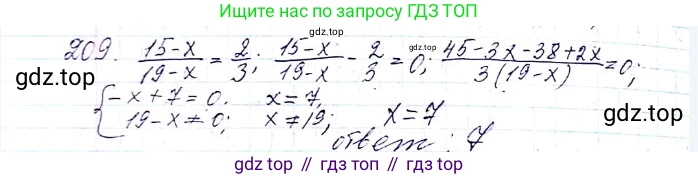 Ищите нас по запросу ГДЗ ТОП
209. (15-x)/(19-x) = 2/3; (15-x)/(19-x) - 2/3 = 0; (45-3x-38+2x)/(3(19-x)) = 0;
{ -x+7=0. x=7,
19-x≠0; x≠19; x=7
ответ: 7
gdz.top
gdz.top
gdz.top
gdz.top
gdz.top // гдз.top // гдз.топ